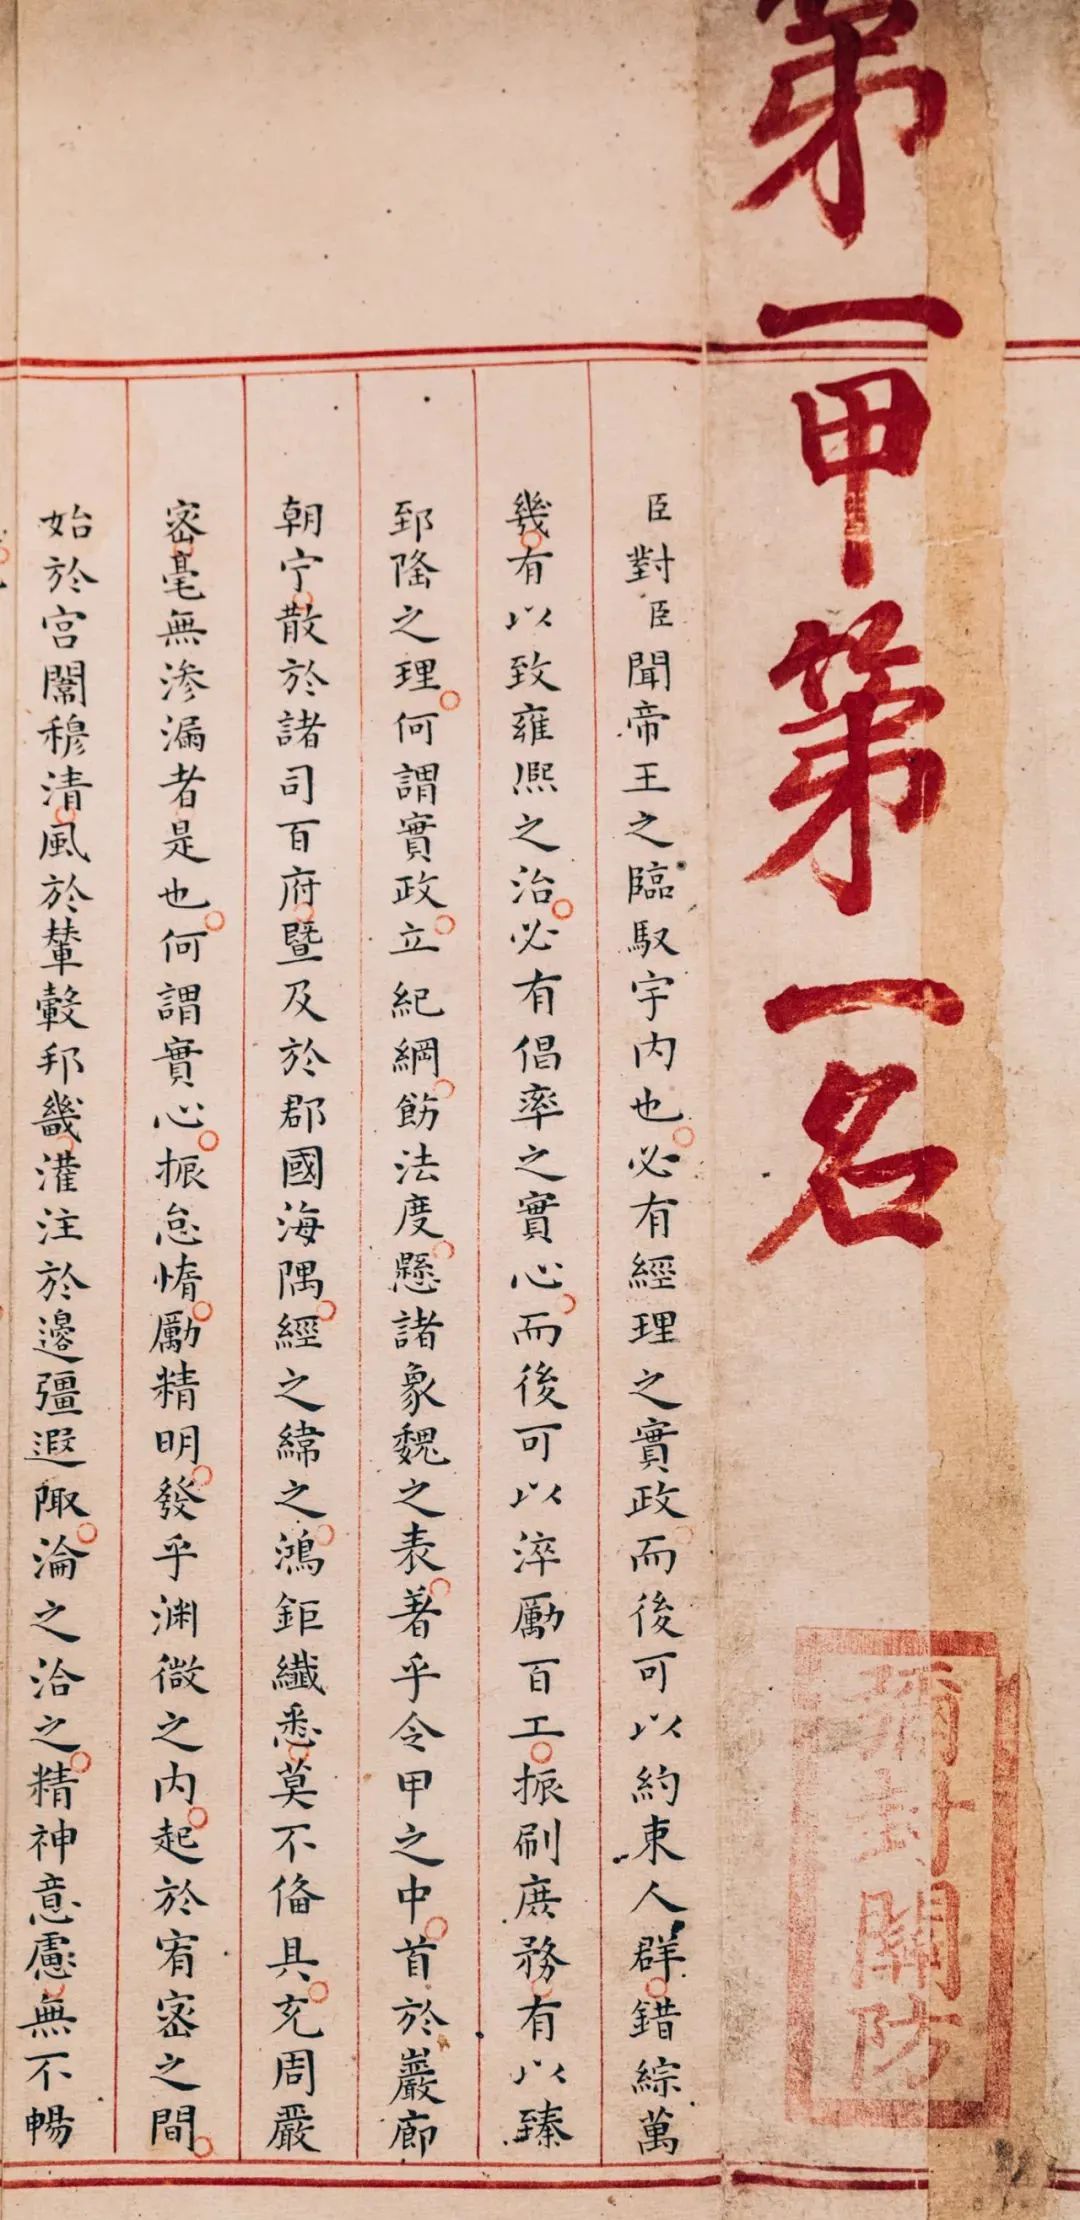 第一甲第一名
彌封關防
臣對臣聞帝王之臨馭宇内也必有經理之實政而後可以約束人群錯綜萬
幾有以致雍熙之治必有倡率之實心而後可以淬勵百工振刷庶務有以臻
郅隆之理何謂實政立紀綱飭法度懸諸象魏之表著乎令甲之中首於巖廊
朝宁散於諸司百府暨及於郡國海隅經之緯之鴻鉅纖悉莫不俻具充周嚴
宻毫無渗漏者是也何謂實心振怠惰勵精明發乎渊微之内起於宥宻之間
始於宫闈穆清風於輦轂邦畿灌注於邊彊遐陬淪之洽之精神意慮無不暢